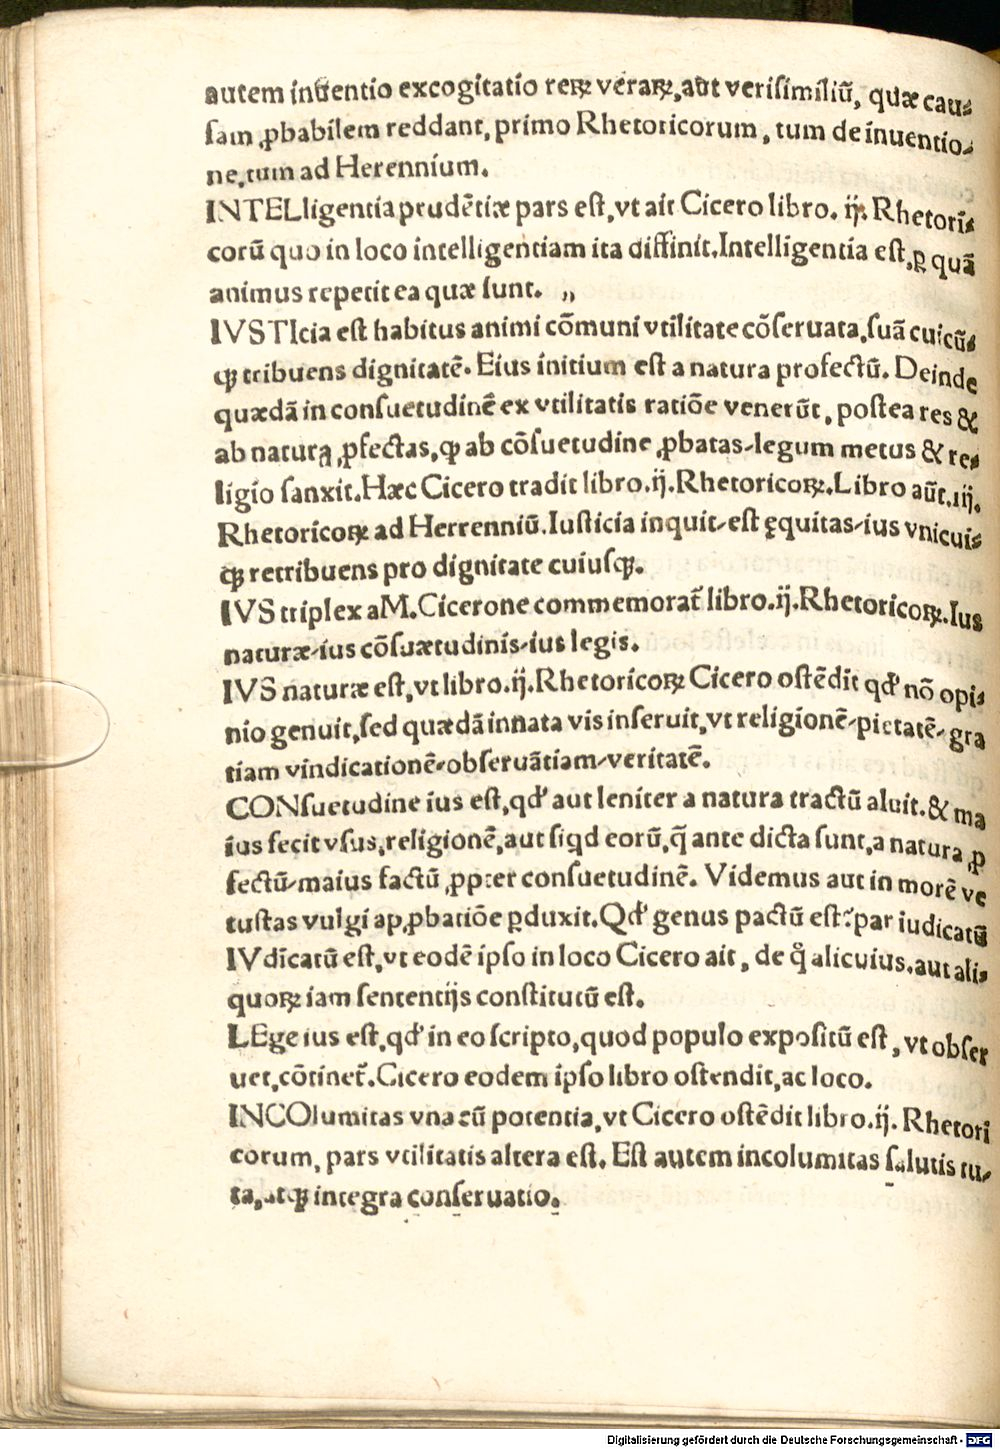 autem inuentio excogitatio reꝝ veraꝝ, aut verisimiliū, quæ cau⸗
sam ꝓbabilem reddant, primo Rhetoricorum, tum de inuentio⸗
ne, tum ad Herennium.
INTELligentia prudētiæ pars est, vt ait Cicero libro. ij. Rhetori⸗
corū quo in loco intelligentiam ita diffinit. Intelligentia est, ꝑ quā
animus repetit ea quæ sunt. „
IVSTIcia est habitus animi cōmuni vtilitate cōseruata, suā cuicū⸗
qꝫ tribuens dignitatē. Eius initium est a natura profectū. Deinde
quædā in consuetudinē ex vtilitatis ratiōe venerūt, postea res &
ab natura ꝓfectas, qꝫ ab cōsuetudine ꝓbatas⸗legum metus & re⸗
ligio sanxit. Hæc Cicero tradit libro. ij. Rhetoricoꝝ. Libro aūt. iij.
Rhetoricoꝝ ad Herrenniū. Iusticia inquit⸗est ęquitas⸗ius vnicui⸗
qꝫ retribuens pro dignitate cuiusqꝫ.
IVS triplex a M. Cicerone commemorat̄ libro. ij. Rhetoricoꝝ. Ius
naturæ⸗ius cōsuætudinis⸗ius legis.
IVS naturæ est, vt libro. ij. Rhetoricoꝝ Cicero ostēdit qd' nō opi⸗
nio genuit, sed quædā innata vis inseruit, vt religionē⸗pietatē⸗gra
tiam vindicationē⸗obseruātiam⸗veritatē.
CONsuetudine ius est, qd' aut leniter a natura tractū aluit. & ma
ius fecit vsus, religionē, aut siqd eorū, q̄ ante dicta sunt, a natura ꝓ
fectū⸗maius factū ꝓpter consuetudinē. Videmus aut in morē ve
tustas vulgi apꝓbatiōe ꝑduxit. Qd' genus pactū est: par iudicatū
IVdīcatū est, vt eodē ipso in loco Cicero ait, de q̊ alicuius, aut ali⸗
quoꝝ iam sententijs constitutū est.
LEge ius est, qd' in eo scripto, quod populo expositū est, vt obser
uet, cōtinet̄. Cicero eodem ipso libro ostendit, ac loco.
INCOlumitas vna cū potentia, vt Cicero ostēdit libro. ij. Rhetori
corum, pars vtilitatis altera est. Est autem incolumitas salutis tu⸗
ta, atqꝫ integra conseruatio.
Digitalisierung gefördert durch die Deutsche Forschungsgemeinschaft - DFG